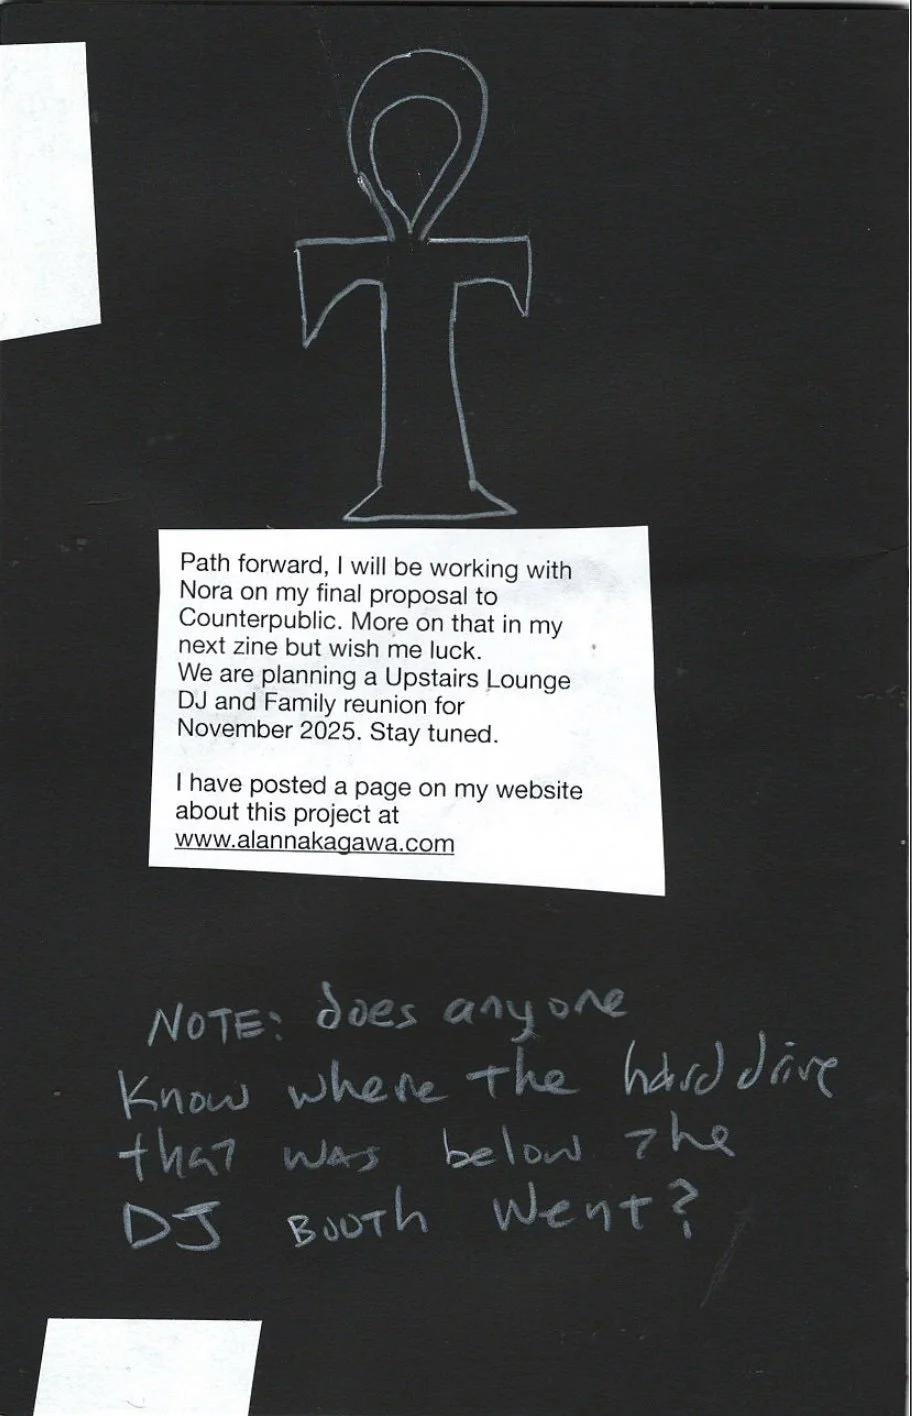 Path forward, I will be working with
Nora on my final proposal to
Counterpublic. More on that in my
next zine but wish me luck.
We are planning a Upstairs Lounge
DJ and Family reunion for
November 2025. Stay tuned.
I have posted a page on my website
about this project at
www.alannakagawa.com
NOTE: does anyone
Know where the hard drive
that was below the
DJ BOOTh went?